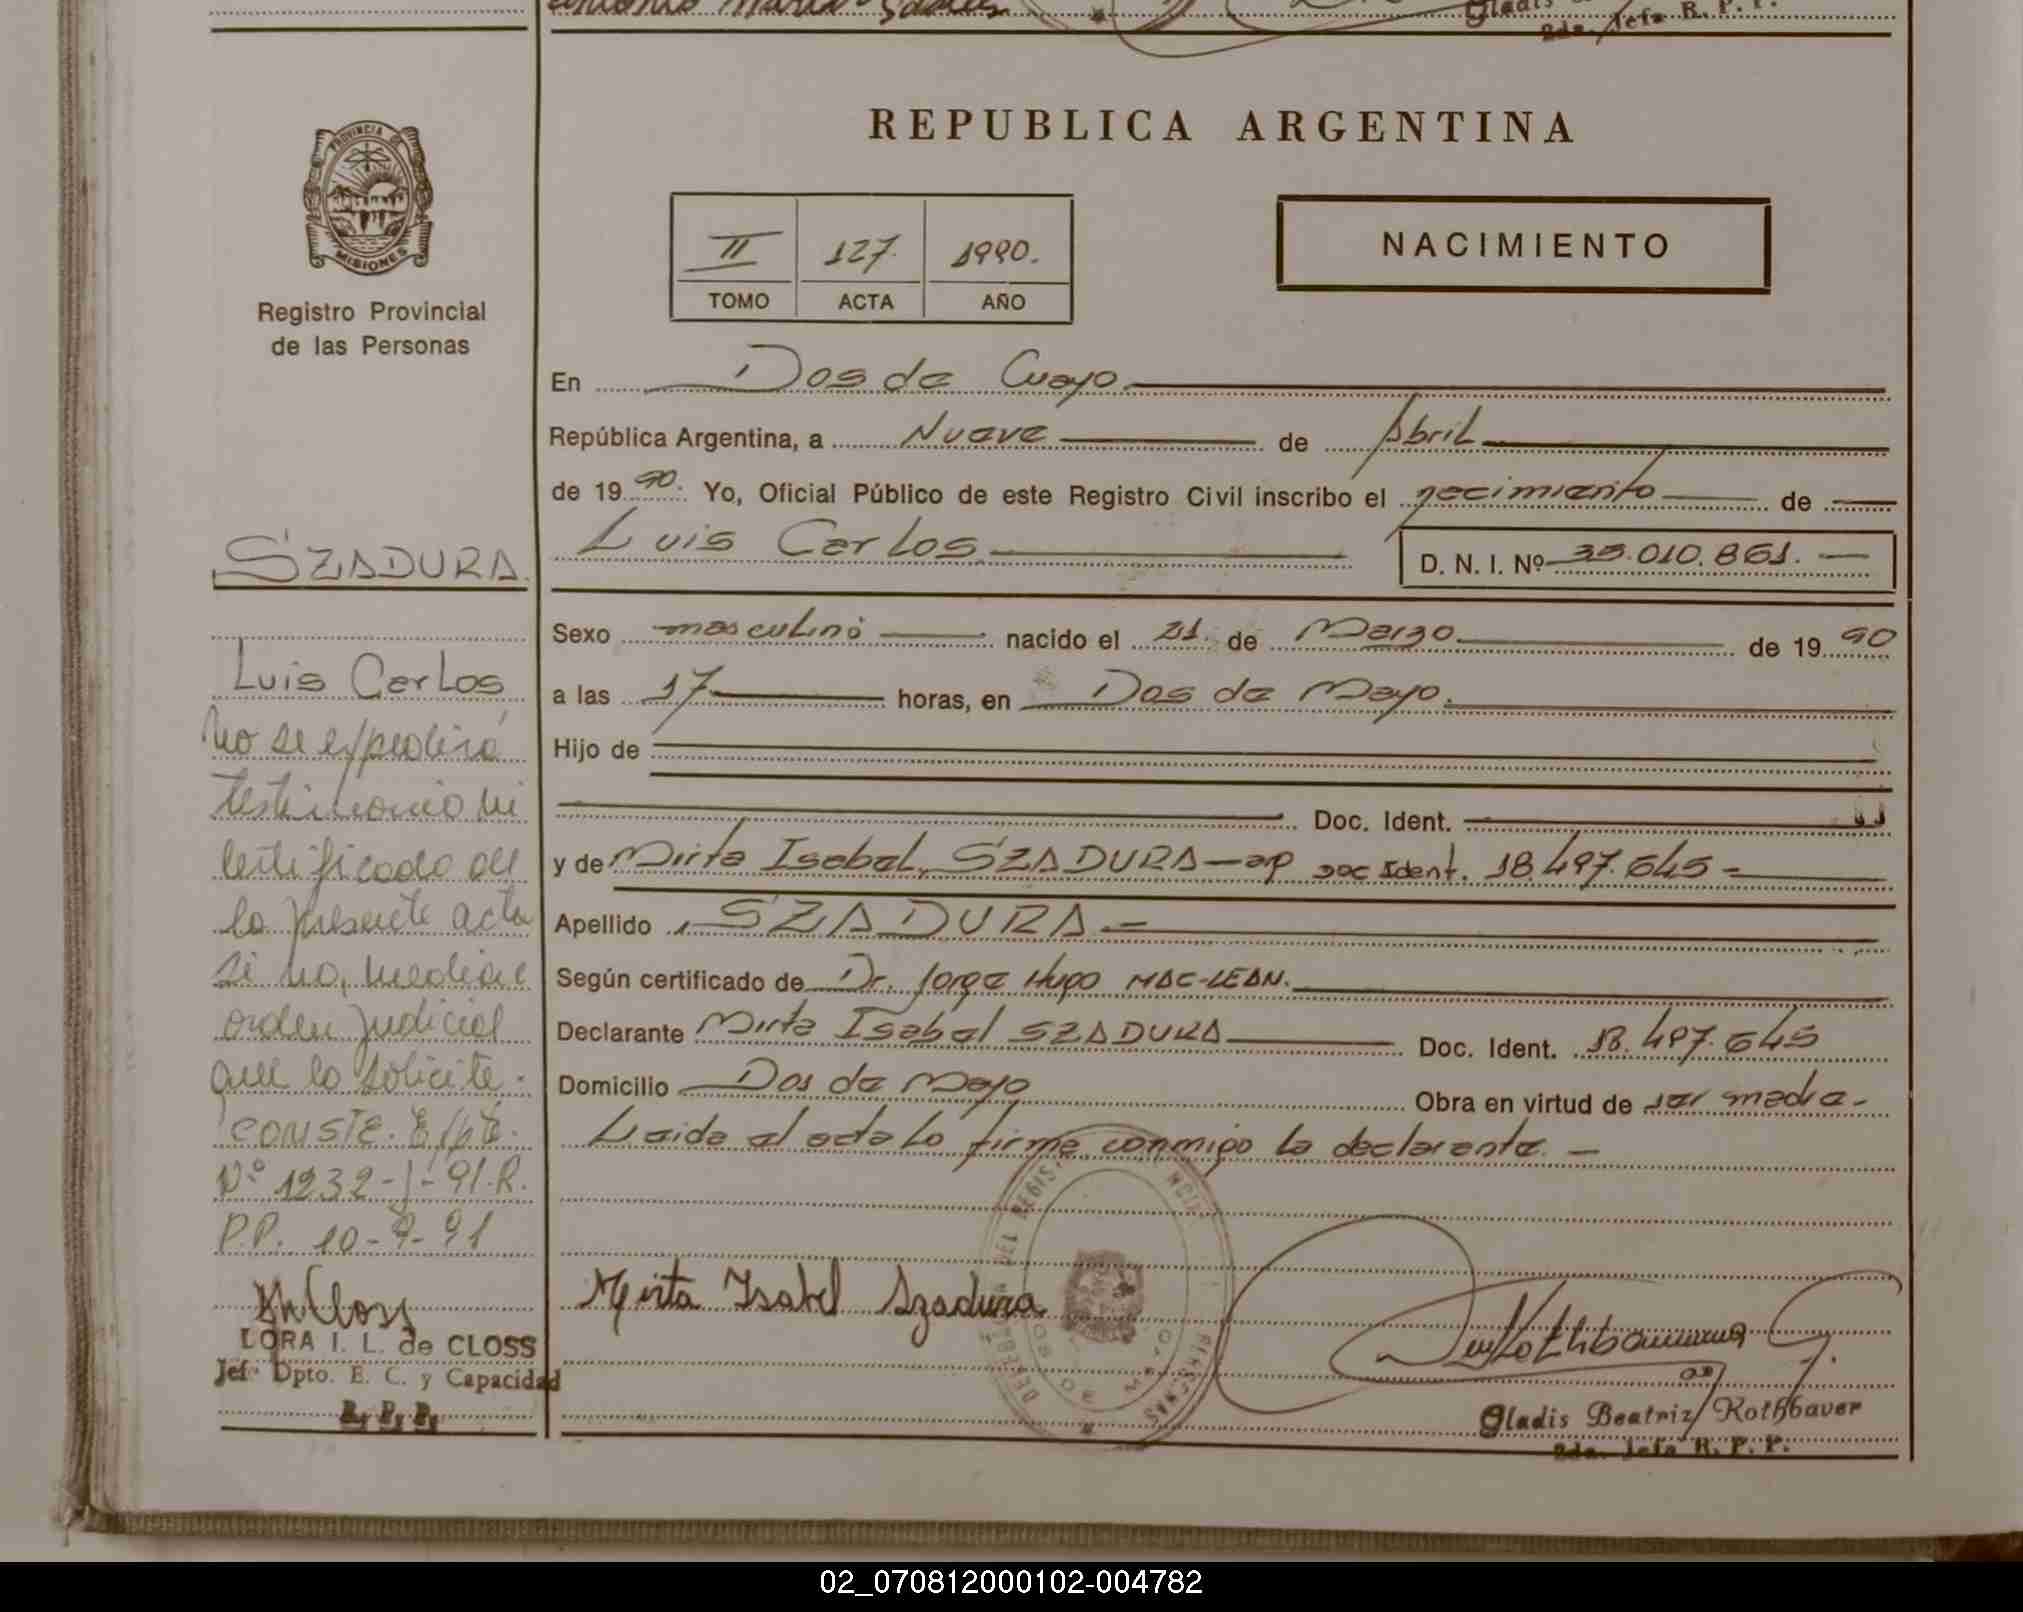 Gladis
2da. Jefa R. P. P.
PROVINCIA DE
MISIONES
Registro Provincial
de las Personas
REPUBLICA ARGENTINA
II 127. 1990.
TOMO ACTA AÑO
NACIMIENTO
En Dos de Mayo
República Argentina, a Nueve de Abril
de 1990. Yo, Oficial Público de este Registro Civil inscribo el nacimiento de
Luis Carlos D. N. I. Nº 35.010.861.
Sexo masculino nacido el 21. de Marzo de 1990
a las 17 horas, en Dos de Mayo.
Hijo de
Doc. Ident.
y de Mirta Isabel, SZADURA-arg Doc Ident. 18.497.645-
Apellido SZADURA-
Según certificado de Dr. Jorge Hugo MAC-LEAN.
Declarante Mirta Isabel SZADURA Doc. Ident. 18.497.645
Domicilio Dos de Mayo Obra en virtud de ser madre-
Leida el acta la firma conmigo la declarante.-
Mirta Isabel Szadura
Gladis Beatriz Rothbauer
2da. Jefa R. P. P.
SZADURA
Luis Carlos
No se expedirá
testimonio ni
certificado de
la presente acta
si no, mediare
orden judicial
que lo solicite.
CONSTE. Expte.
Nº 1232-J-91.R.
P.P. 10-9-91
LORA I. L. de CLOSS
Jef. Dpto. E. C. y Capacidad
R. P. P.
02_070812000102-004782